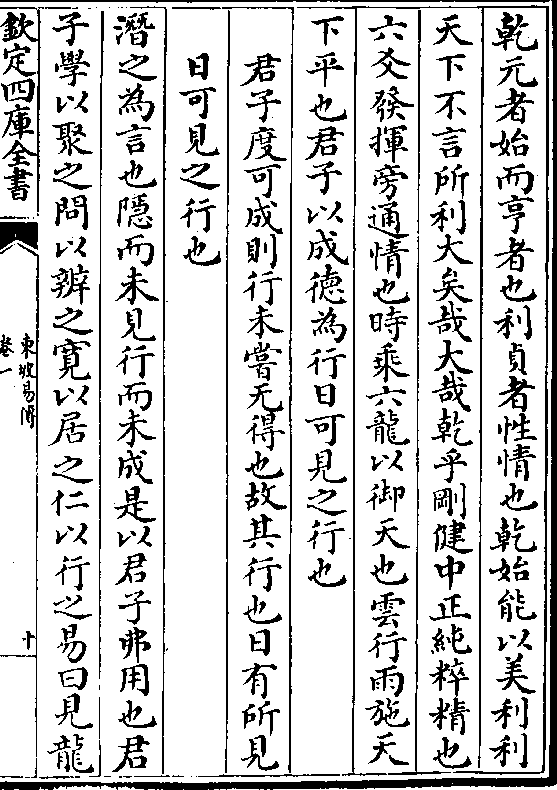 乾元者始而亨者也利貞者性情也乾始能以美利利
天下不言所利大矣哉大哉乾乎剛健中正純粹精也
六爻發揮旁通情也時乘六龍以御天也雲行雨施天
下平也君子以成德為行日可見之行也
君子度可成則行未嘗无得也故其行也日有所見
日可見之行也
潛之為言也隱而未見行而未成是以君子弗用也君
子學以聚之問以辨之寬以居之仁以行之易曰見龍
欽定四庫全書
東坡易傳
卷一
十